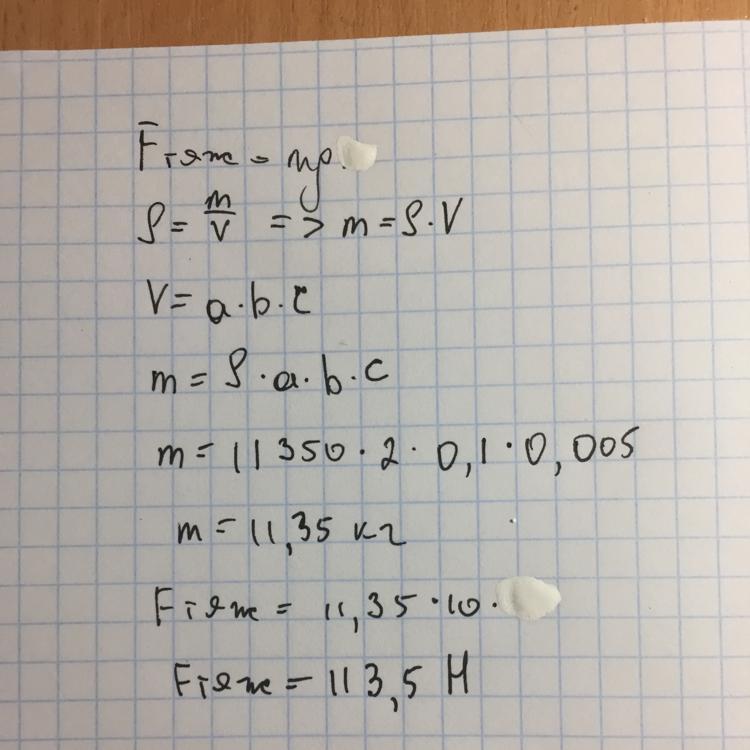 Fтяж = mg.
ρ = m/V => m = ρ·V
V = a·b·c
m = ρ·a·b·c
m = 11350·2·0,1·0,005
m = 11,35 кг
Fтяж = 11,35·10·
Fтяж = 113,5 Н